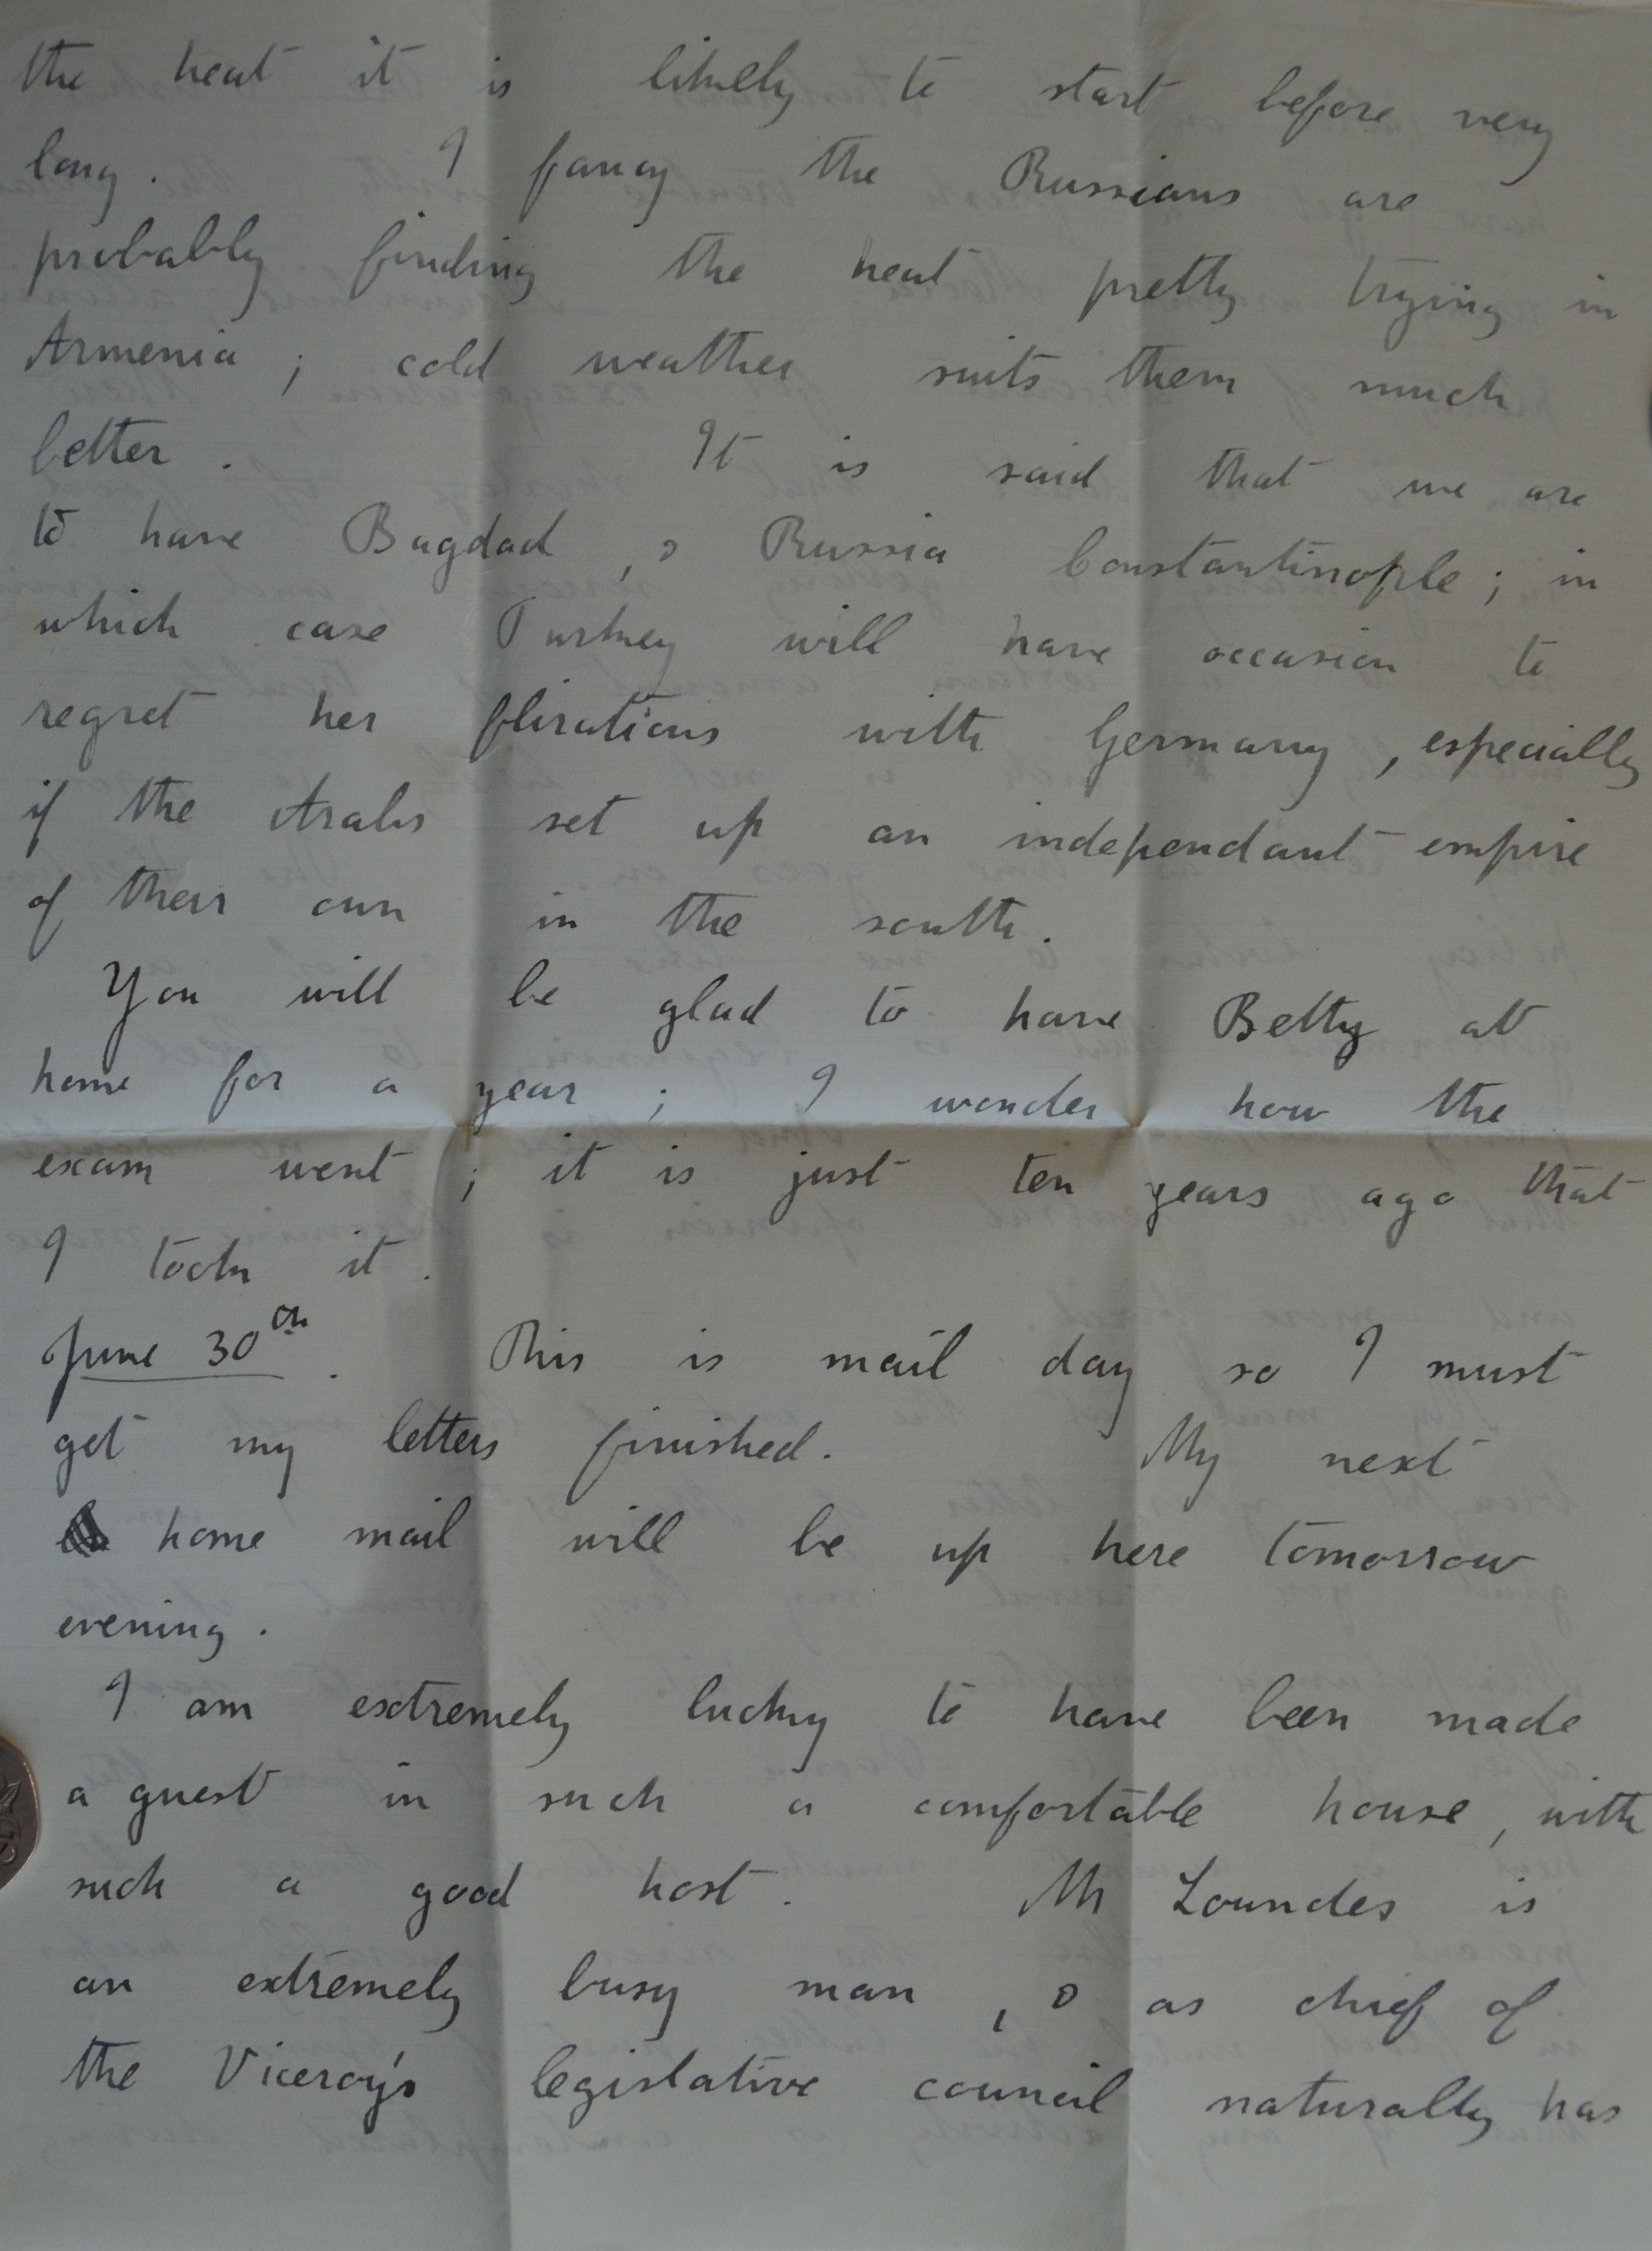 the heat it is likely to start before very
long. I fancy the Russians are
probably finding the heat pretty trying in
Armenia; cold weather suits them much
better. It is said that we are
to have Bagdad, & Russia Constantinople; in
which case Turkey will have occasion to
regret her flirations with Germany, especially
if the Arabs set up an independant empire
of their own in the south.
You will be glad to have Betty at
home for a year; I wonder how the
exam went; it is just ten years ago that
I took it.
June 30th. This is mail day so I must
get my letters finished. My next
home mail will be up here tomorrow
evening.
I am extremely lucky to have been made
a guest in such a comfortable house, with
such a good host. Mr Lowndes is
an extremely busy man, & as chief of
the Viceroy's legislative council naturally has